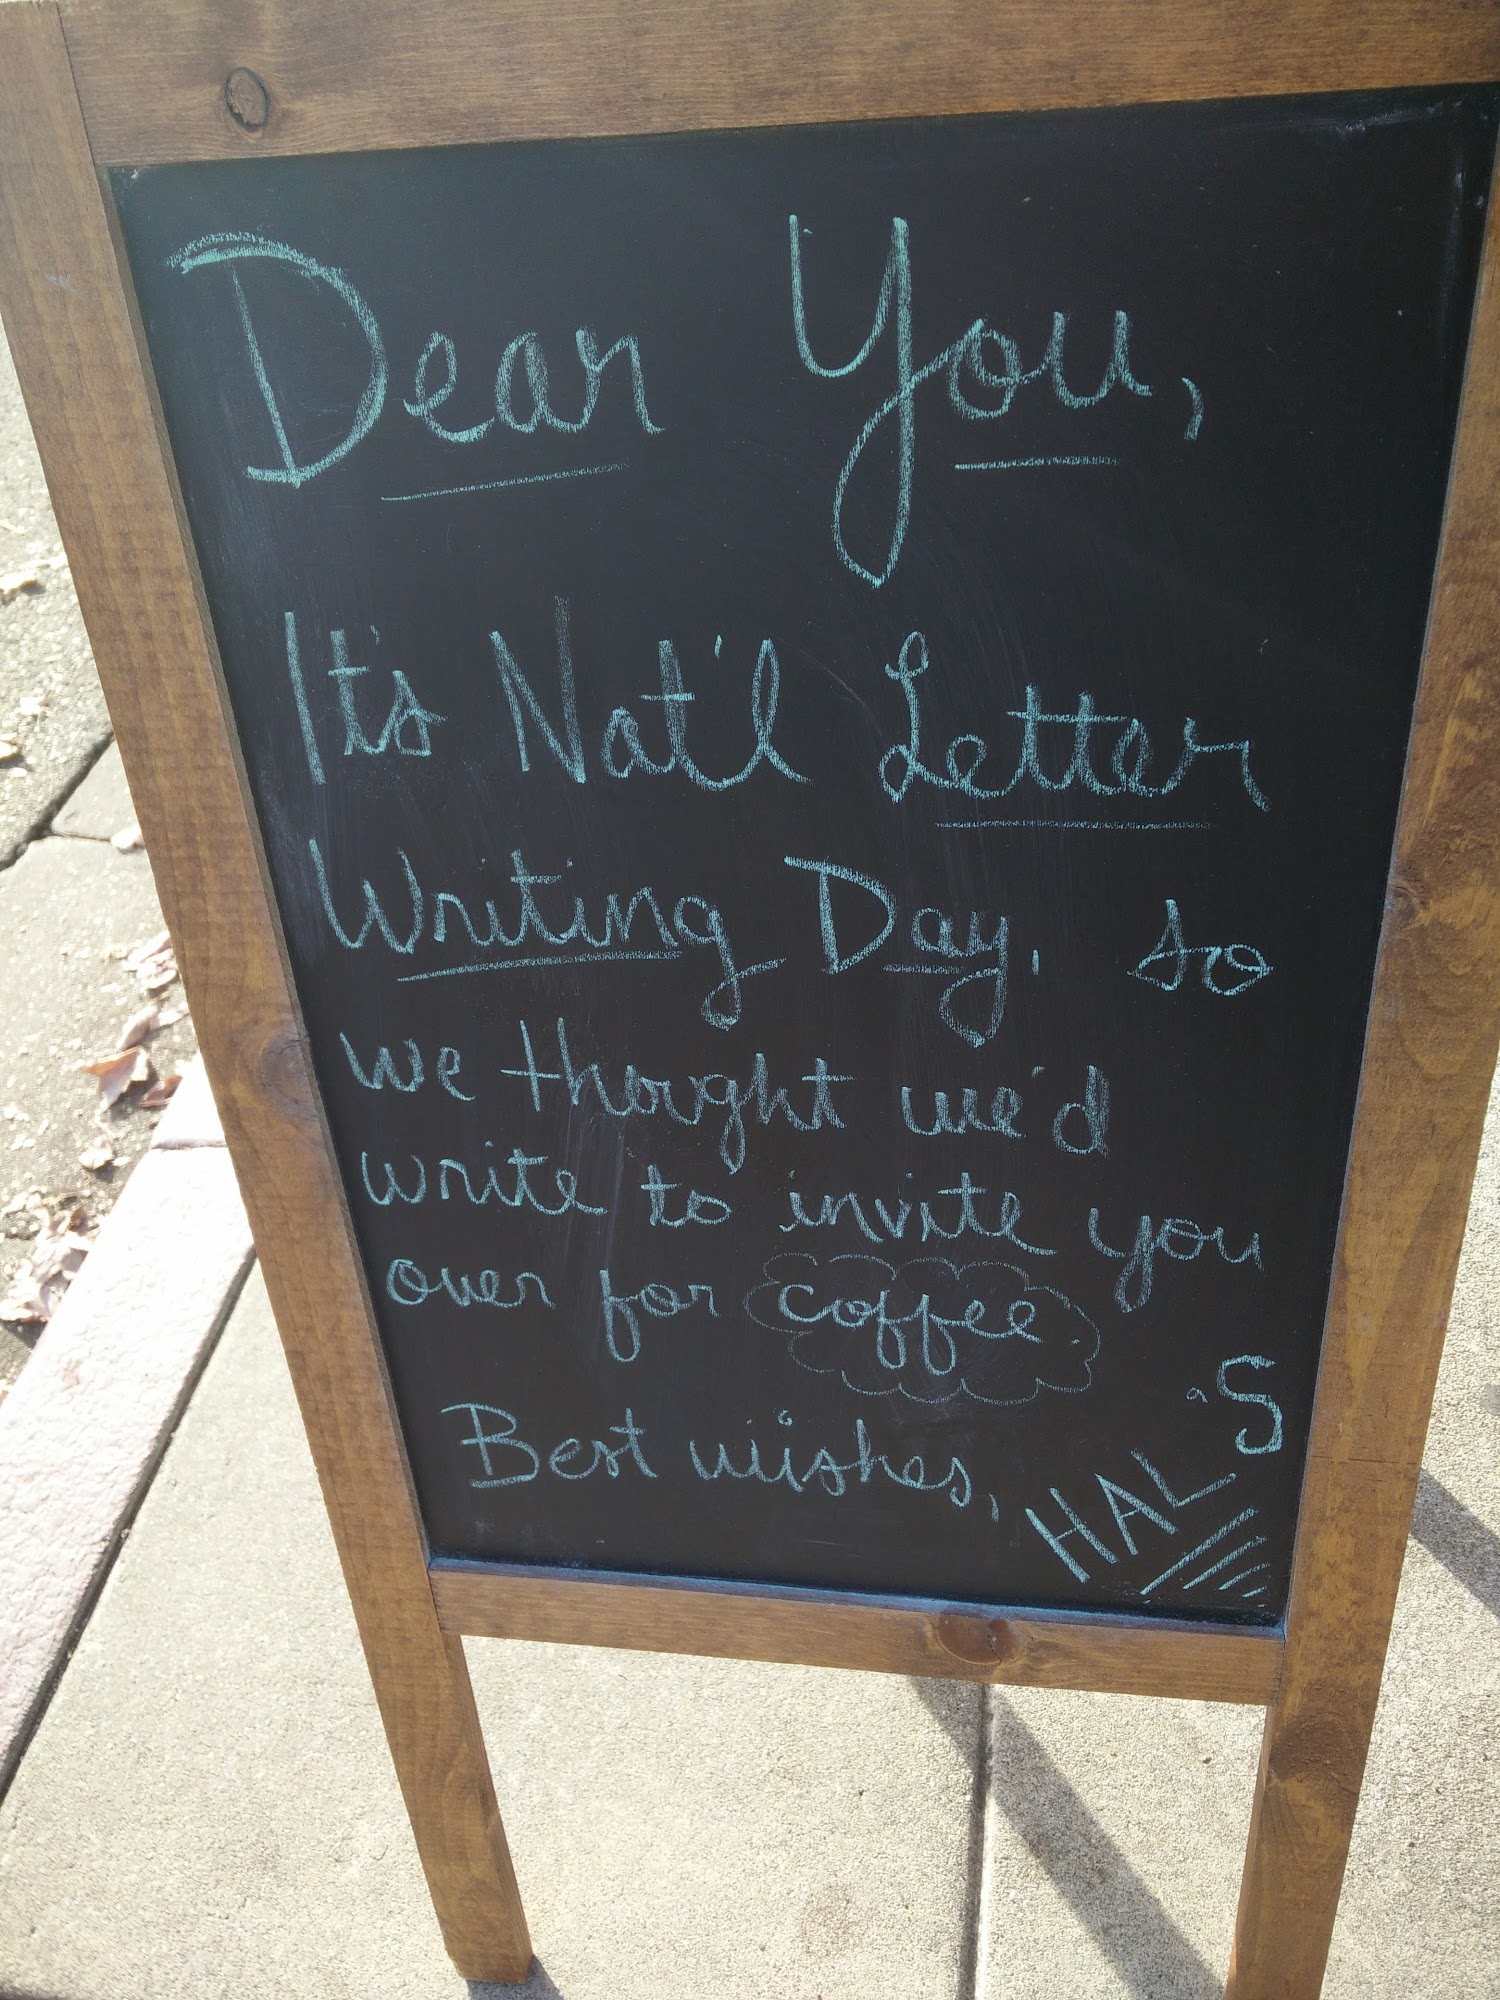 Dear You,
It's Nat'l Letter
Writing Day, so
we thought we'd
write to invite you
over for coffee.
Best wishes,
HAL'S